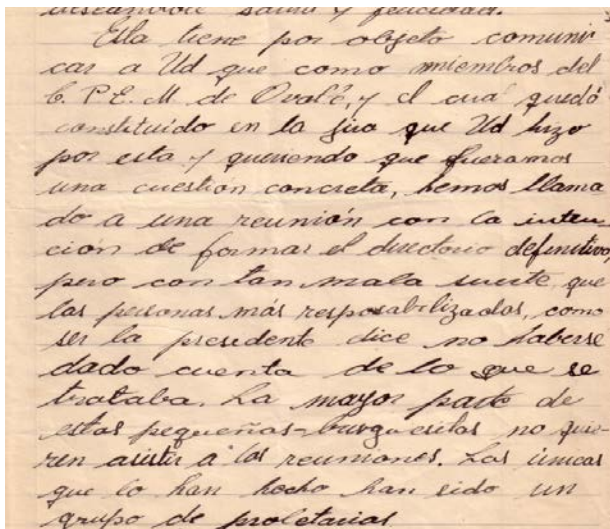 deseandole salud y felicidad.
Esta tiene por objeto comuni
car a Ud que como miembros del
C. P. E. M de Ovalle, y el cual quedó
constituido en la jira que Ud hizo
por esta y queriendo que fueramos
una cuestión concreta, hemos llama
do a una reunión con la inten_
ción de formar el directorio definitivo,
pero con tan mala suerte, que
las personas más resposabilizadas, como
ser la presidente dice no haberse
dado cuenta de lo que se
trataba. La mayor parte de
estas pequeñas-burguesitas no quie-
ren asistir a las reuniones. Las únicas
que lo han hecho han sido un
grupo de proletarias